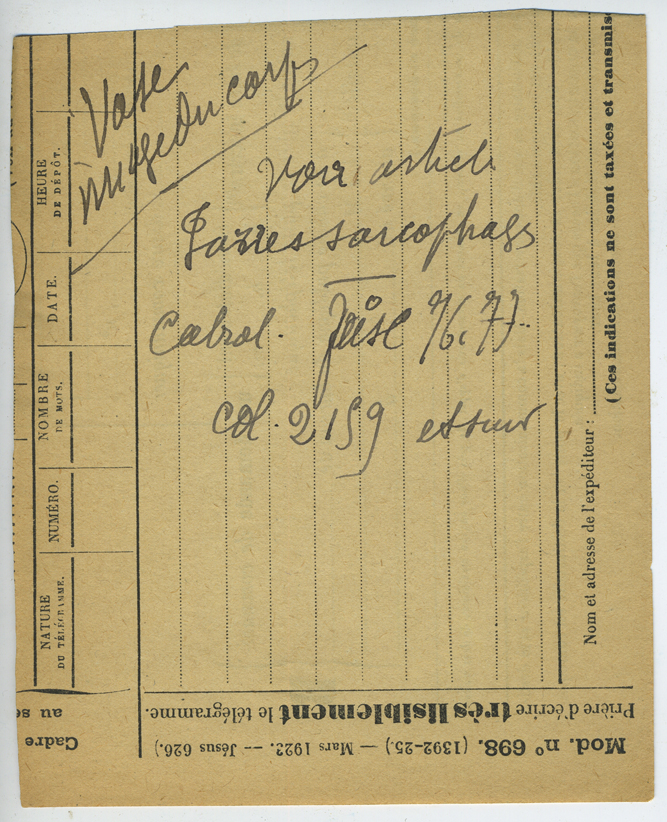 Vase
voir article
sarcophages
Cabrol.
col. 2159 et suiv
HEURE
DE DÉPÔT.
DATE.
NOMBRE
DE MOTS.
NUMÉRO.
NATURE
DU TÉLÉGRAMME.
(Ces indications ne sont taxées et transmis
Nom et adresse de l'expéditeur :
Mod. n° 698. (1392-25.) — Mars 1923. -- Jésus 626.)
Prière d'écrire très lisiblement le télégramme.
Cadre
au se